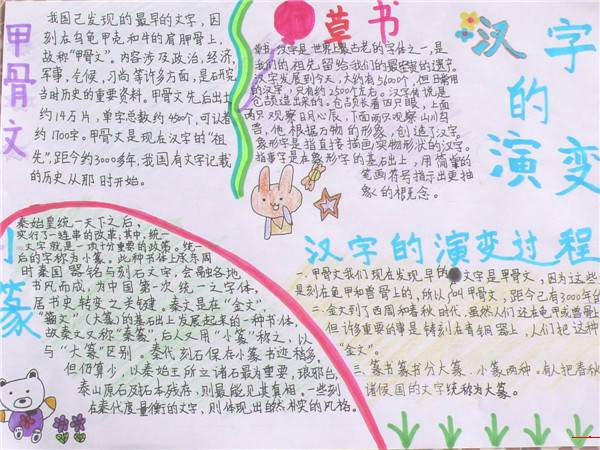 甲骨文
我国已发现的最早的文字，因
刻在乌龟甲壳和牛的肩胛骨上，
故称“甲骨文”。内容涉及政治，经济，
军事，气候，习尚等许多方面，是研究
当时历史的重要资料。甲骨文先后出土
约14万片，单字总数约4500个，可认者
约1700字。甲骨文是现在汉字的“祖
先”，距今约3000多年，我国有文字记载
的历史从那时开始。
草书
汉字是世界上最古老的字体之一，是
我们的祖先留给我们的最宝贵的遗产。
汉字发展到今天，大约有56000个，但日常用
的汉字，只有约2500个左右。汉字传说是
仓颉造出来的。仓颉长着四只眼，上面
两只观察日月心辰，下面两只观察山川鸟
兽，他根据万物的形象，创造了汉字。
象形字是指直接描画实物形状的汉字。
指事字是在象形字的基石出上，用简单的
笔画符号指示出更抽
象的概念。
汉字
的
演变
小篆
秦始皇统一天下之后，
实行了一连串的改革，其中，统一
文字就是一项十分重要的政策。统一
后的字称为小篆。此种书体上承东周
时秦国器铭与刻石文字，会融各地，
书风而成，为中国第一次统一之字体，
居书史转变之关键。秦文是在“金文”
“籀文”（大篆）的基础上发展起来的一种书体，
故秦文又称“秦篆”，后人又用“小篆”称之，以
与“大篆”区别。秦代刻石保存小篆书迹极多，
但仍算少，以秦始王所立诸石最为重要，琅邪台，
泰山原石及拓本残存，则最能见其真相。一些刻
在秦代度量衡的文字，则体现出自然朴实的风格。
汉字的演变过程
一、甲骨文我们现在发现早的文字是甲骨文，因为这些
是刻在龟甲和兽骨上的，所以叫甲骨文，距今已有3000年的
二、金文到了西周和春秋时代，虽然人们还在龟甲或兽骨上
但许多重要的事是铸刻在青铜器上，人们把这种
“金文”。
三、篆书篆书分大篆、小篆两种。有人把春秋
诸侯国的文字统称为大篆。